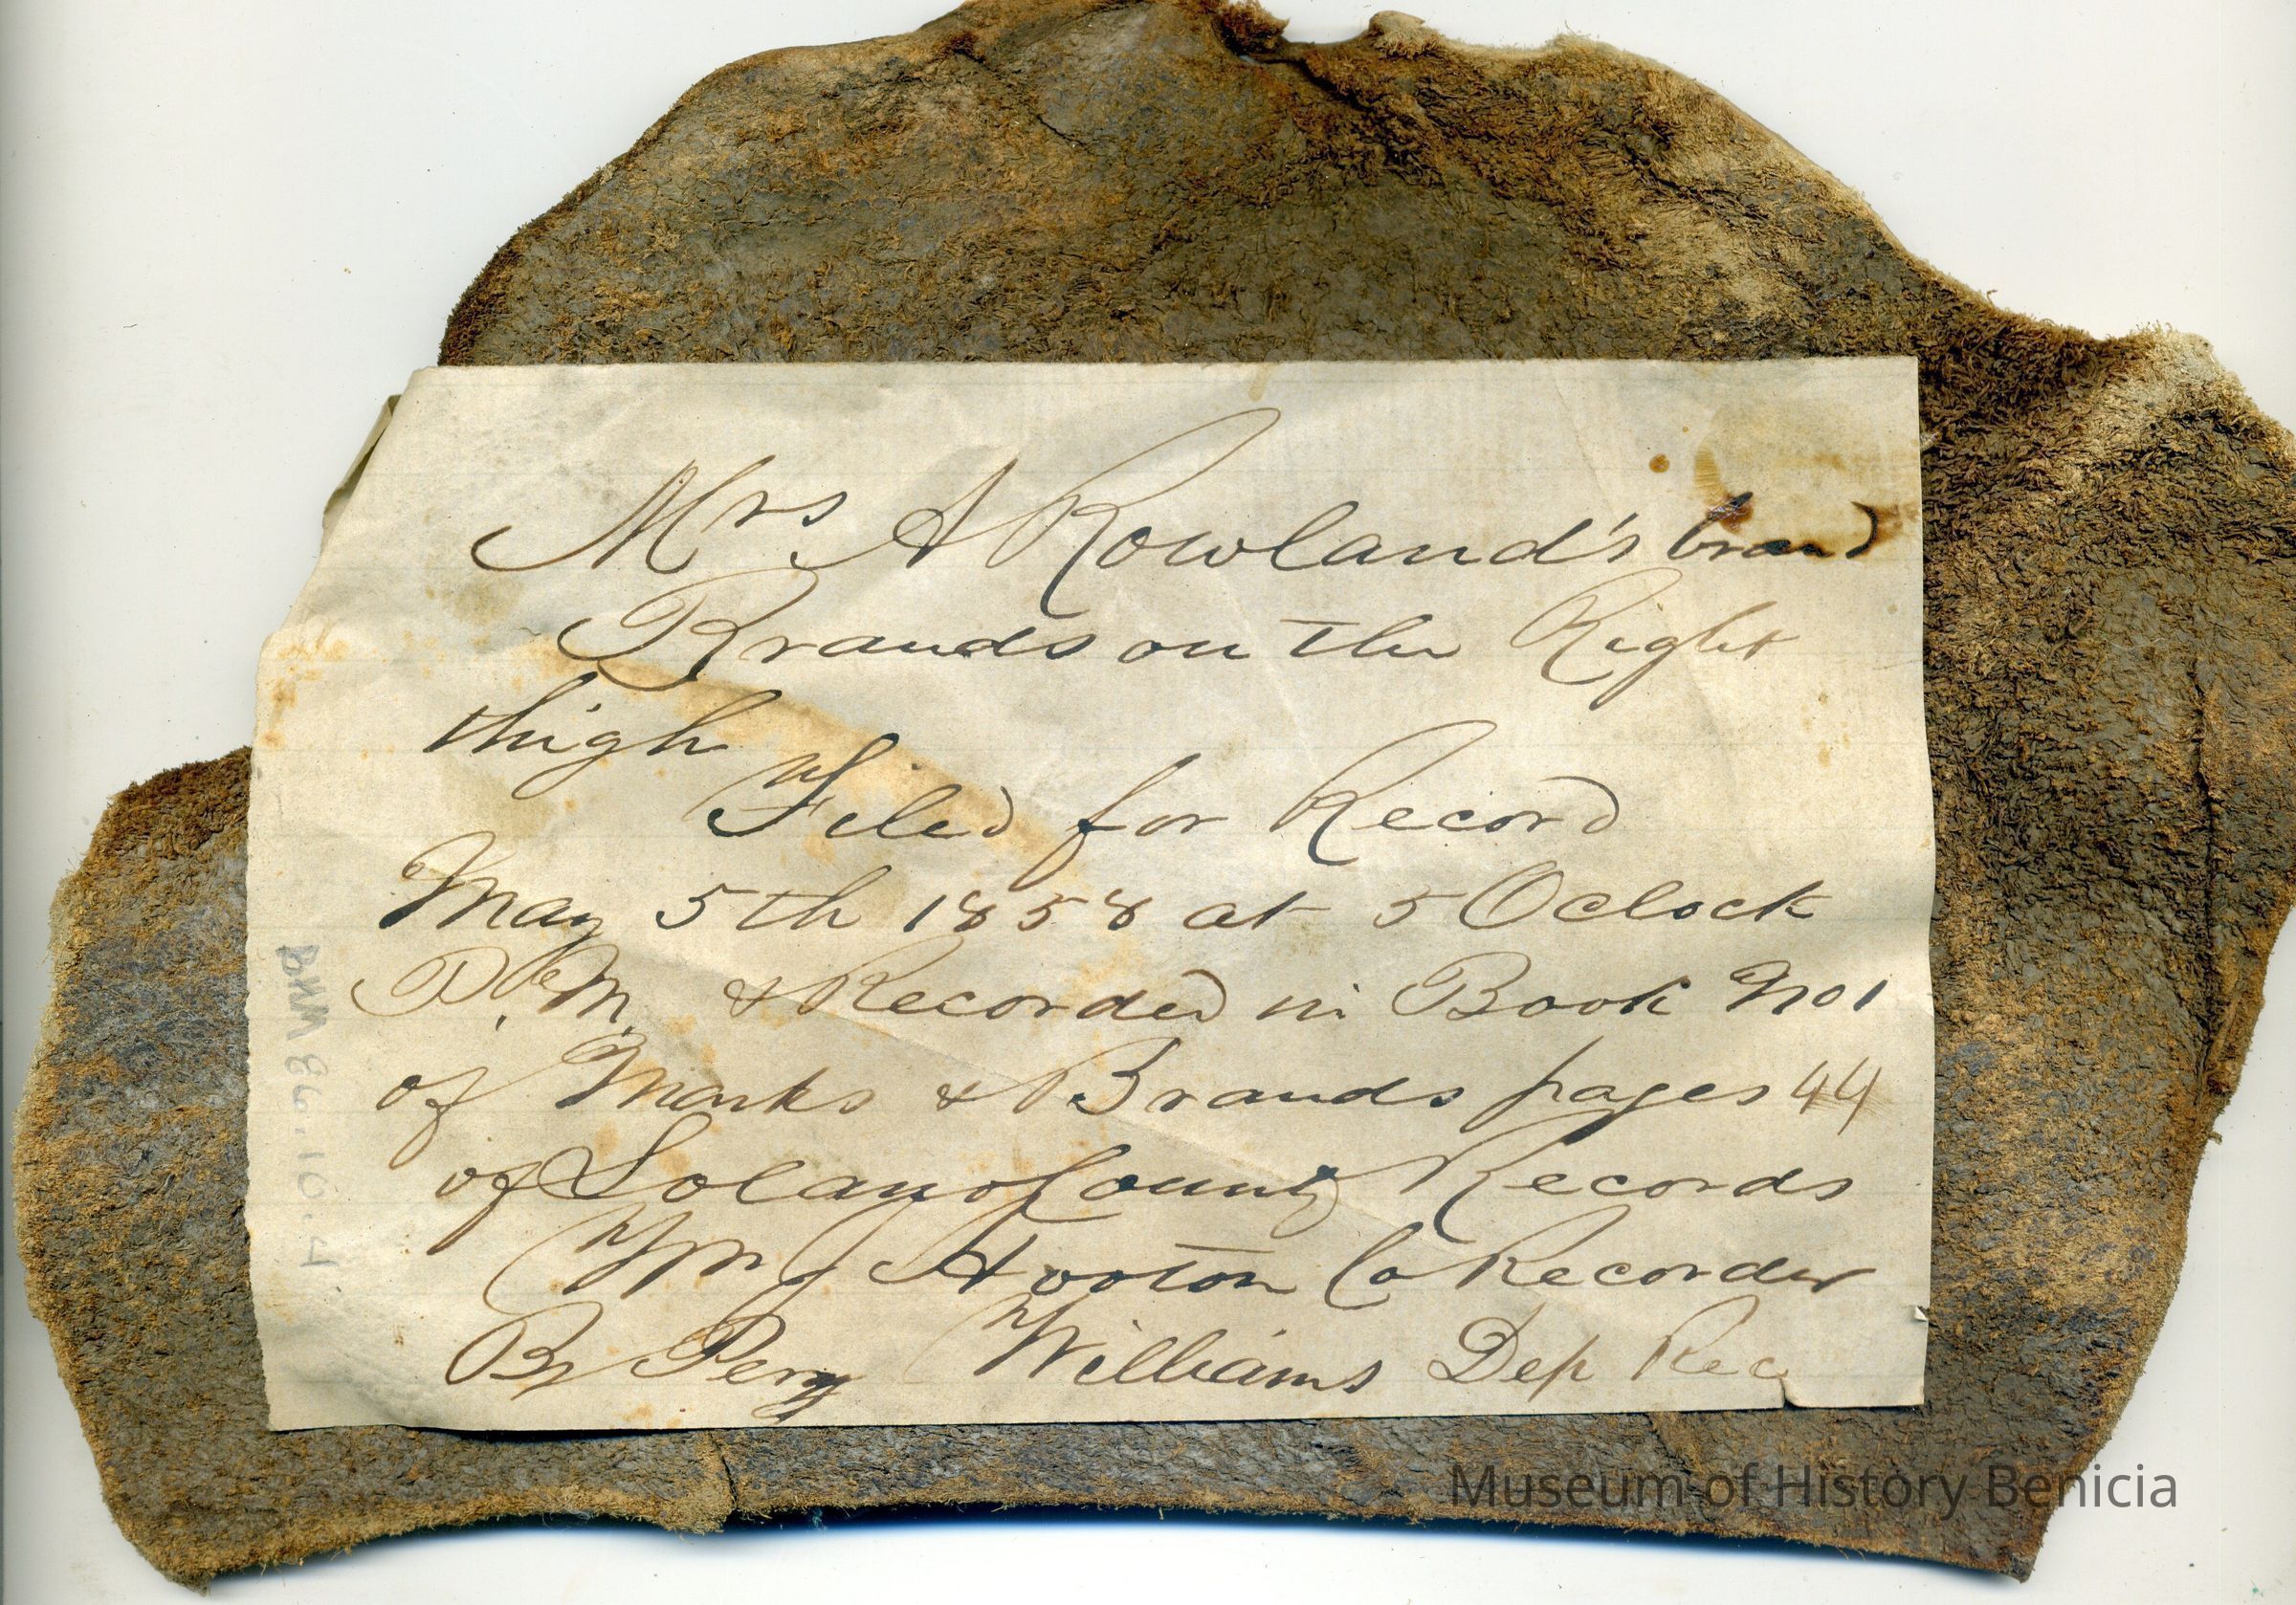 Mrs A Rowland's brand
Brands on the Right
thigh
Filed for Record
May 5th 1858 at 5 Oclock
P.M. & Recorded in Book No 1
of Marks & Brands pages 44
of Solano County Records
Wm J Hooton Co Recorder
By Perry Williams Dep Rec
BHM 86.10.4
Museum of History Benicia